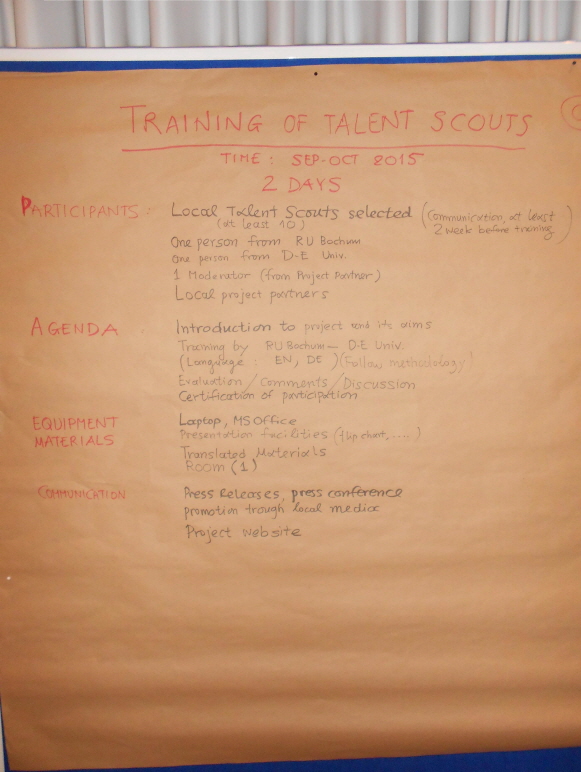 TRAINING OF TALENT SCOUTS
TIME: SEP-OCT 2015
2 DAYS
PARTICIPANTS: Local Talent Scouts selected (communication, at least
(at least 10) 2 week before training)
One person from RU Bochum
One person from D-E Univ.
1 Moderator (from Project Partner)
Local project partners
AGENDA Introduction to project and its aims
Training by RU Bochum – D-E Univ.
(Language: EN, DE) (Follow methodology)
Evaluation / Comments / Discussion
Certification of participation
EQUIPMENT Laptop, MS Office
MATERIALS Presentation facilities (flip chart, ....)
Translated Materials
Room (1)
COMMUNICATION Press Releases, press conference
promotion trough local media
Project website